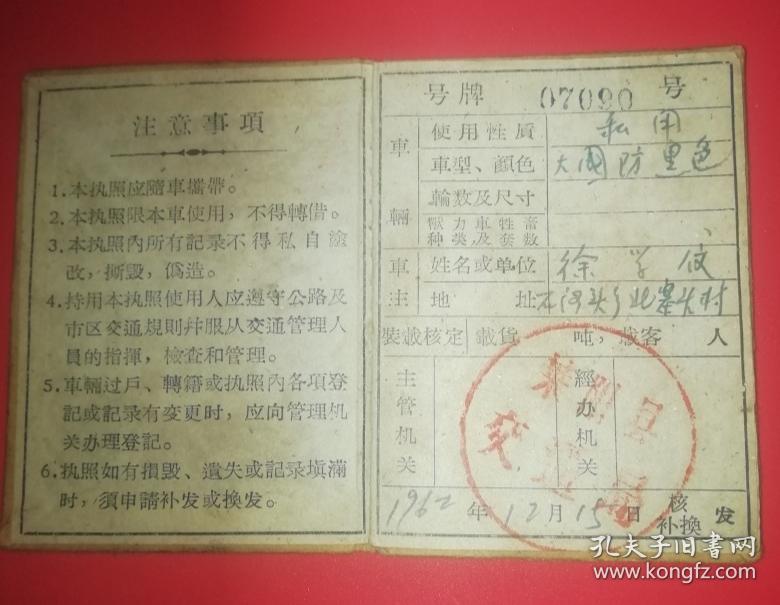 注意事項
1.本执照应隨車攜帶。
2.本执照限本車使用，不得轉借。
3.本执照內所有記录不得私自塗
改，撕毀，偽造。
4.持用本执照使用人应遵守公路及
市区交通規則幷服从交通管理人
員的指揮，檢查和管理。
5.車輛过戶、轉籍或执照內各項登
記或記录有变更时，应向管理机
关办理登記。
6.执照如有損毀、遺失或記录塡滿
时，須申請补发或换发。
号牌 07090 号
車輛
使用性质 私用
車型、顏色 大國防 黑色
輪数及尺寸
獸力車牲畜
种类及套数
車主
姓名或单位 徐学
地址 北寨头村
裝載核定 載貨 吨，載客 人
主管机关
經办机关
交通局
1962年12月15日 核 补換 发
孔夫子旧书网
www.kongfz.com